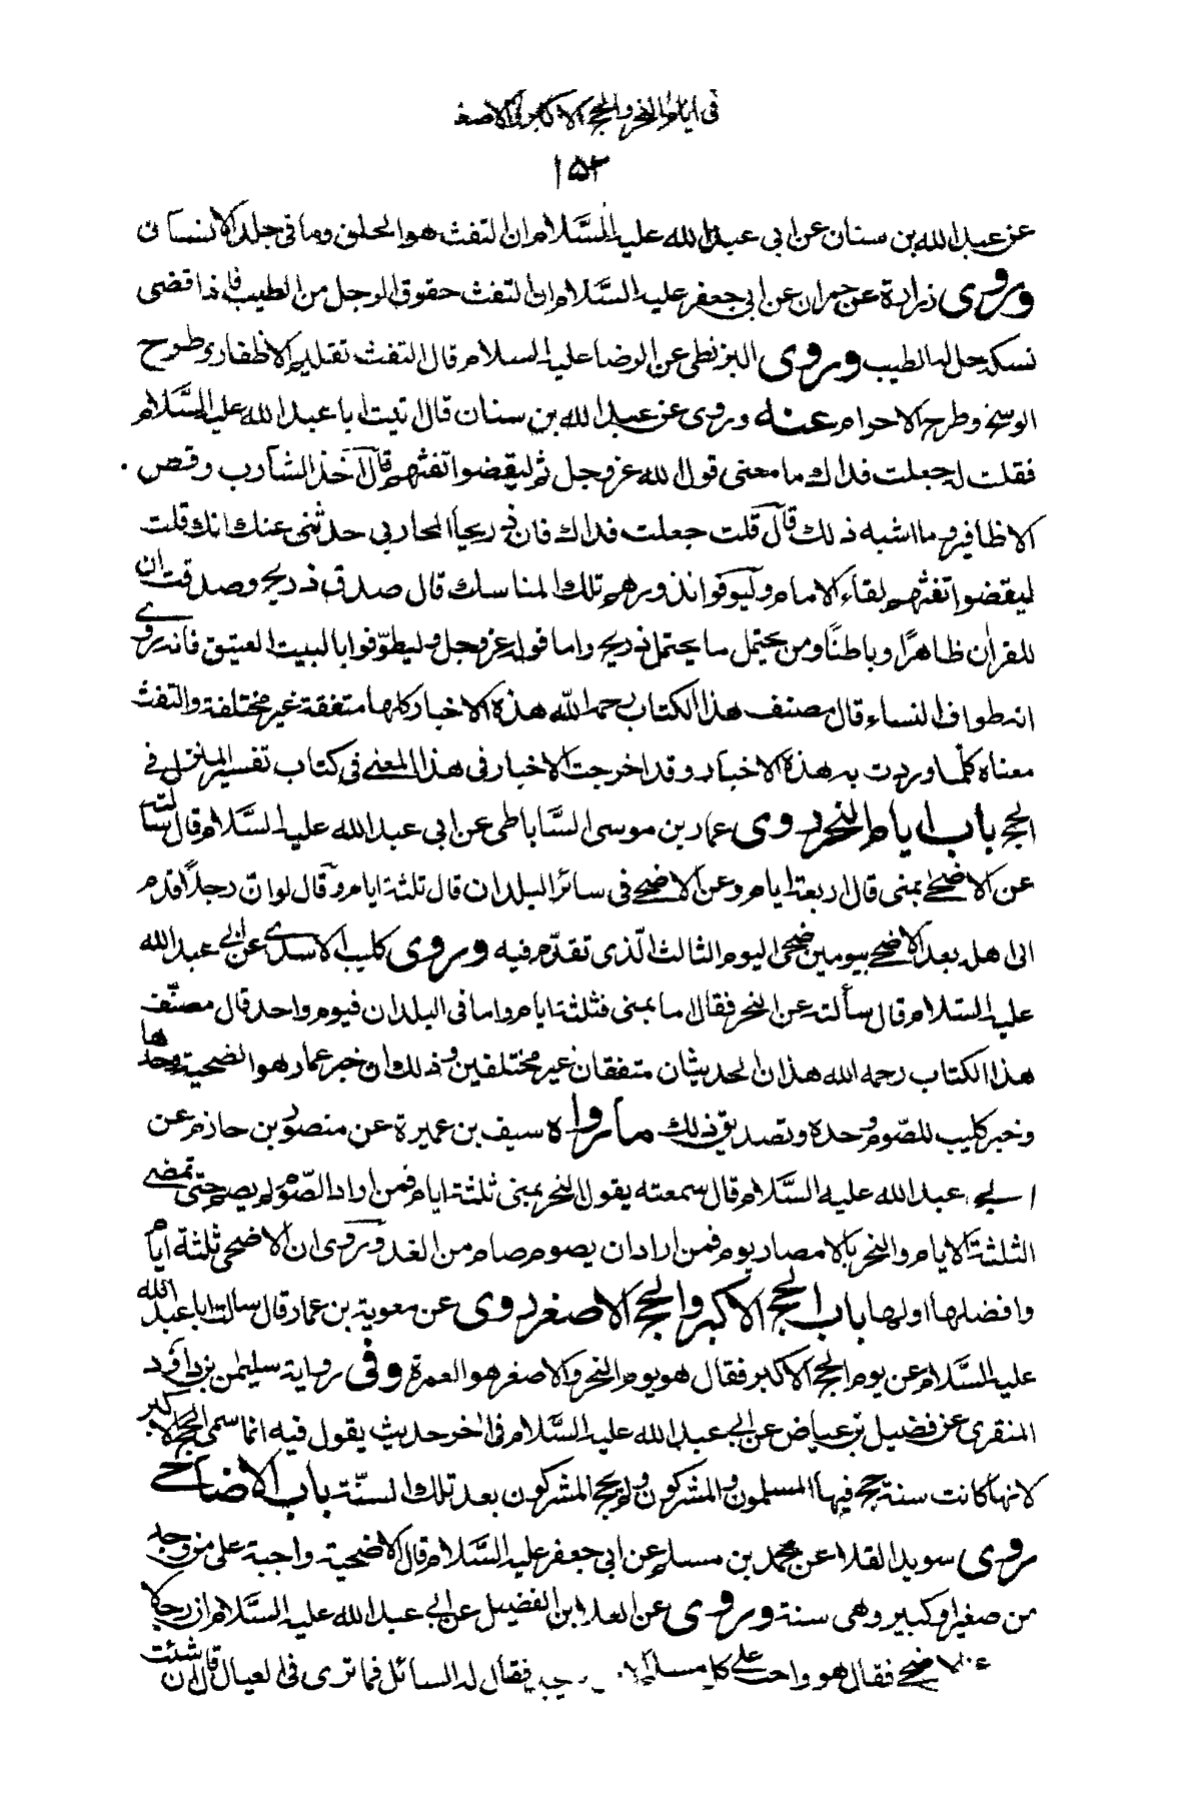 في ايام النحر والحج الاكبر والاصغر
١٥٢
عن عبد الله بن سنان عن ابي عبد الله عليه السَّلام ان التفث هو الحلق وما في جلد الانسان
وروى زرارة عن حمران عن ابي جعفر عليه السَّلام ان التفث حقوق الرجل من الطيب فاذا قضى
نسكه حل له الطيب وروى البزنطي عن الرضا عليه السلام قال التفث تقليم الاظفار وطرح
الوسخ وطرح الاحرام عنه وروى عن عبد الله بن سنان قال اتيت ابا عبد الله عليه السَّلام
فقلت له جعلت فداك ما معنى قول الله عز وجل ثم ليقضوا تفثهم قال اخذ الشارب وقص
الاظافير وما اشبه ذلك قال قلت جعلت فداك فان ذريحا المحاربي حدثني عنك انك قلت
ليقضوا تفثهم لقاء الامام وليوفوا نذورهم تلك المناسك قال صدق ذريح وصدقت ان
للقران ظاهرًا وباطنًا ومن يحتمل ما يحتمل ذريح واما قوله عز وجل وليطوّفوا بالبيت العتيق فانه يروى
انه طواف النساء قال مصنف هذا الكتاب رحمه الله هذه الاخبار كلها متفقة غير مختلفة والتفث
معناه كلّما وردت به هذه الاخبار وقد اخرجت الاخبار في هذا المعنى في كتاب تفسير المنزل في
الحج باب ايام النحر روى عمار بن موسى السَّاباطي عن ابي عبد الله عليه السَّلام قال سالته
عن الاضحى بمنى قال اربعة ايام وعن الاضحى في سائر البلدان قال ثلثة ايام وقال لو انّ رجلًا قدم
الى اهله بعد الاضحى بيومين ضحى اليوم الثالث الّذى تقدّم فيه وروى كليب الاسدى عن ابي عبد الله
عليه السّلام قال سألته عن النحر فقال اما بمنى فثلثة ايام واما في البلدان فيوم واحد قال مصنّف
هذا الكتاب رحمه الله هذان الحديثان متفقان غير مختلفين وذلك ان خبر عمار هو الضحية وحدها
وخبر كليب للصّوم وحده وتصديق ذلك ما رواه سيف بن عميرة عن منصور بن حازم عن
ابي عبد الله عليه السَّلام قال سمعته يقول النحر بمنى ثلثة ايام فمن اراد الصّوم لم يصم حتى تمضى
الثلثة الايام والنحر بالامصار يوم فمن اراد ان يصوم صام من الغد وروى ان الاضحى ثلثة ايام
وافضلها اولها باب الحج الاكبر والحج الاصغر روى عن معوية بن عمار قال سالت ابا عبد الله
عليه السَّلام عن يوم الحج الاكبر فقال هو يوم النحر والاصغر هو العمرة وفي رواية سليمن بن داود
المنقرى عن فضيل بن عياض عن ابي عبد الله عليه السَّلام في اخر حديث يقول فيه انما سمى الحج الاكبر
لانها كانت سنة حج فيها المسلمون والمشركون ولم يحج المشركون بعد تلك السنّة باب الاضاحى
روى سويد القلا عن محمد بن مسلم عن ابي جعفر عليه السَّلام قال الاضحية واجبة على من وجد
من صغير او كبير وهي سنة وروى عن العلا بن الفضيل عن ابي عبد الله عليه السَّلام ان رجلا
الاضحى فقال هو واجب على كل مسلم فقال له السائل فما ترى في العيال قال ان شئت